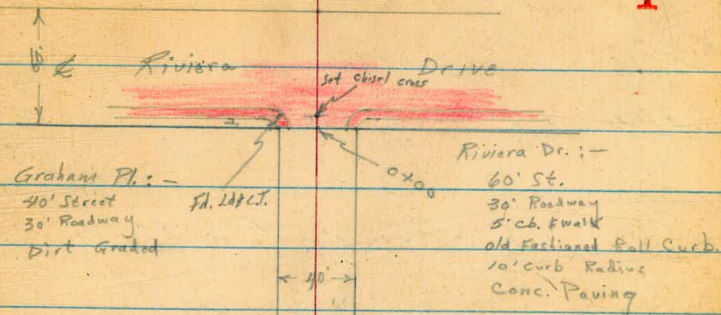 ℄ Riviera Drive
Set chisel cross
Graham Pl.:-
40' Street
30' Roadway
Dirt Graded
Fd. Ld & T.
0+00
Riviera Dr.:-
60' St.
30' Roadway
5' cb. & walk
old Fashioned Roll Curb.
10' Curb Radius
Conc. Paving
40'